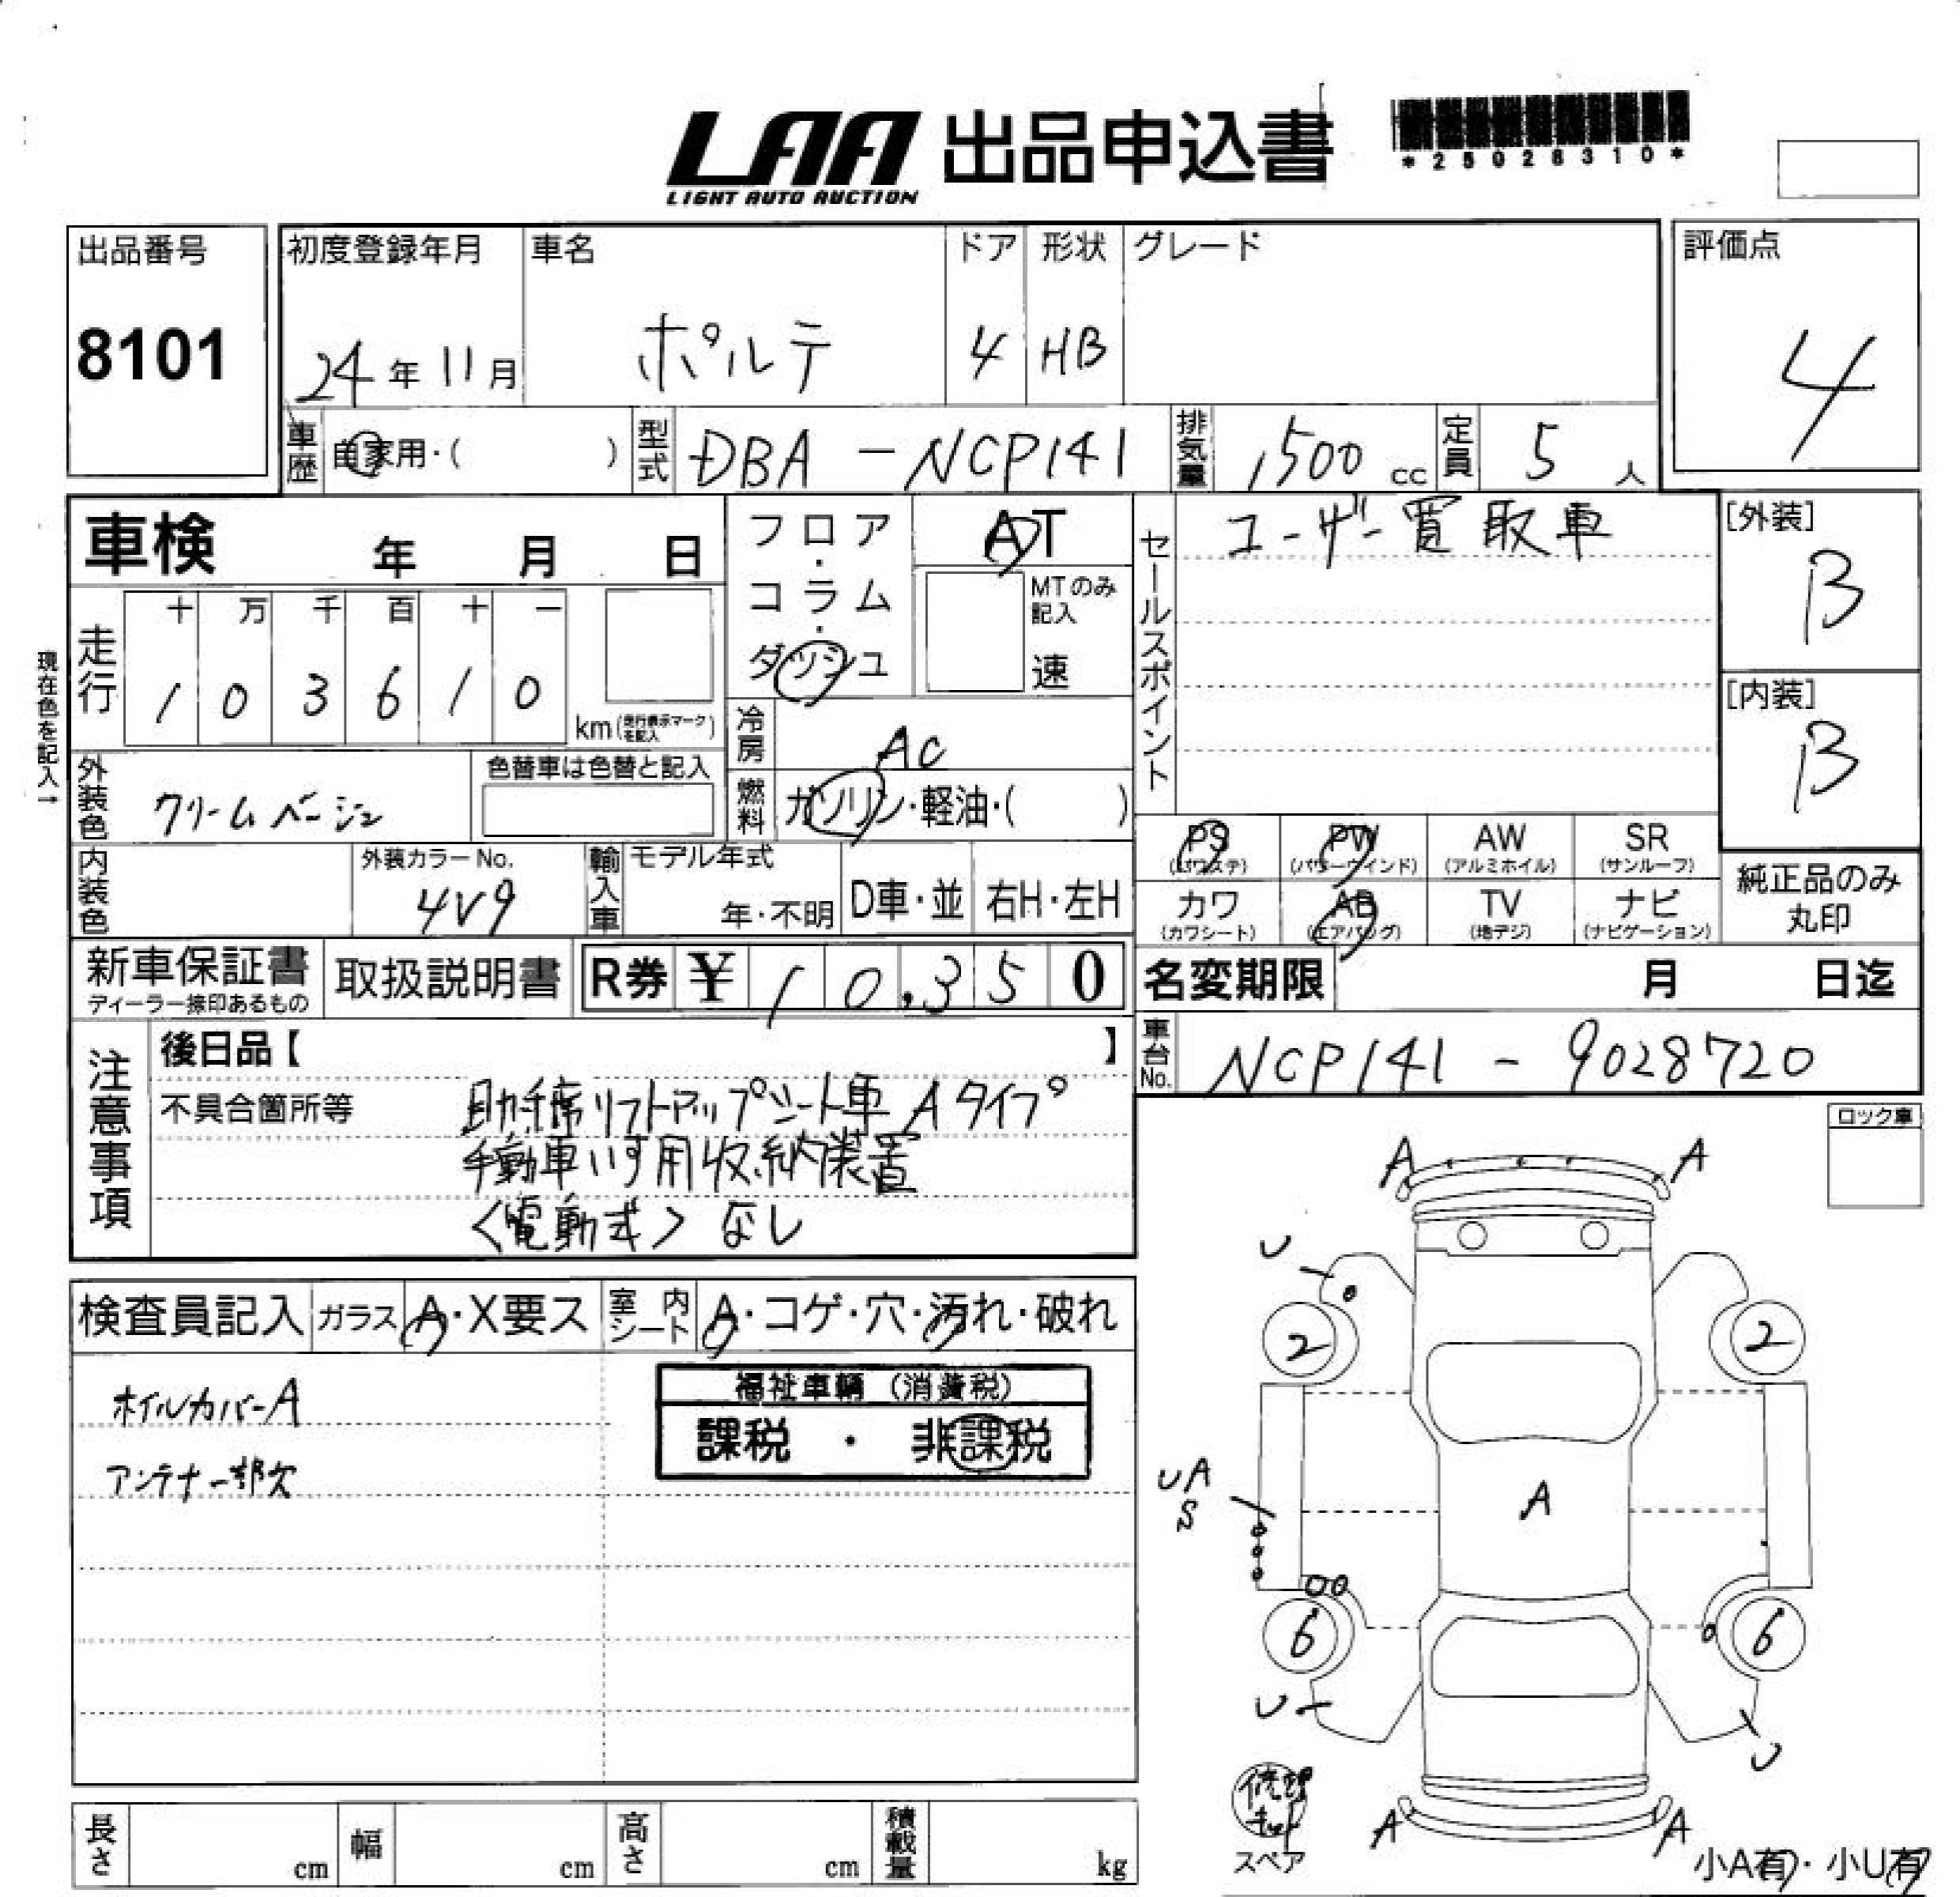 LAA 出品申込書
LIGHT AUTO AUCTION
*25028310*
出品番号
8101
初度登録年月 車名 ドア 形状 グレード 評価点
24年 11月 ポルテ 4 HB 4
車歴 自家用・( ) 型式 DBA-NCP141 排気量 1500 cc 定員 5 人
車検 年 月 日
フロア・コラム・ダッシュ
AT
MTのみ記入
速
セールスポイント
ユーザー買取車
[外装]
B
[内装]
B
現在色を記入→
走行
十 万 千 百 十 一
1 0 3 6 1 0
km(走行表示マークを記入)
冷房 AC
燃料 ガソリン・軽油・( )
外装色 クリームベージュ
色替車は色替と記入
PS PW AW SR
(パワステ) (パワーウィンド) (アルミホイル) (サンルーフ)
カワ AB TV ナビ
(カワシート) (エアバッグ) (地デジ) (ナビゲーション)
純正品のみ
丸印
内装色
外装カラーNo.
4V9
輸入車 モデル年式
年・不明 D車・並 右H・左H
新車保証書
ディーラー捺印あるもの
取扱説明書 R券 ¥ 10,350
名変期限 月 日迄
車台No. NCP141-9028720
注意事項
後日品【 】
不具合箇所等
助手席リフトアップシート車 Aタイプ
手動車いす用収納装置
<電動式> なし
ロック車
検査員記入 ガラス A・X要ス 室内シート A・コゲ・穴・汚れ・破れ
ホイルカバーA
アンテナ一部欠
福祉車輌(消費税)
課税 ・ 非課税
A A
U
2 2
UA
S
A
6 6
U U
A A
修理キット
スペア
小A有・小U有
長さ cm 幅 cm 高さ cm 積載量 kg